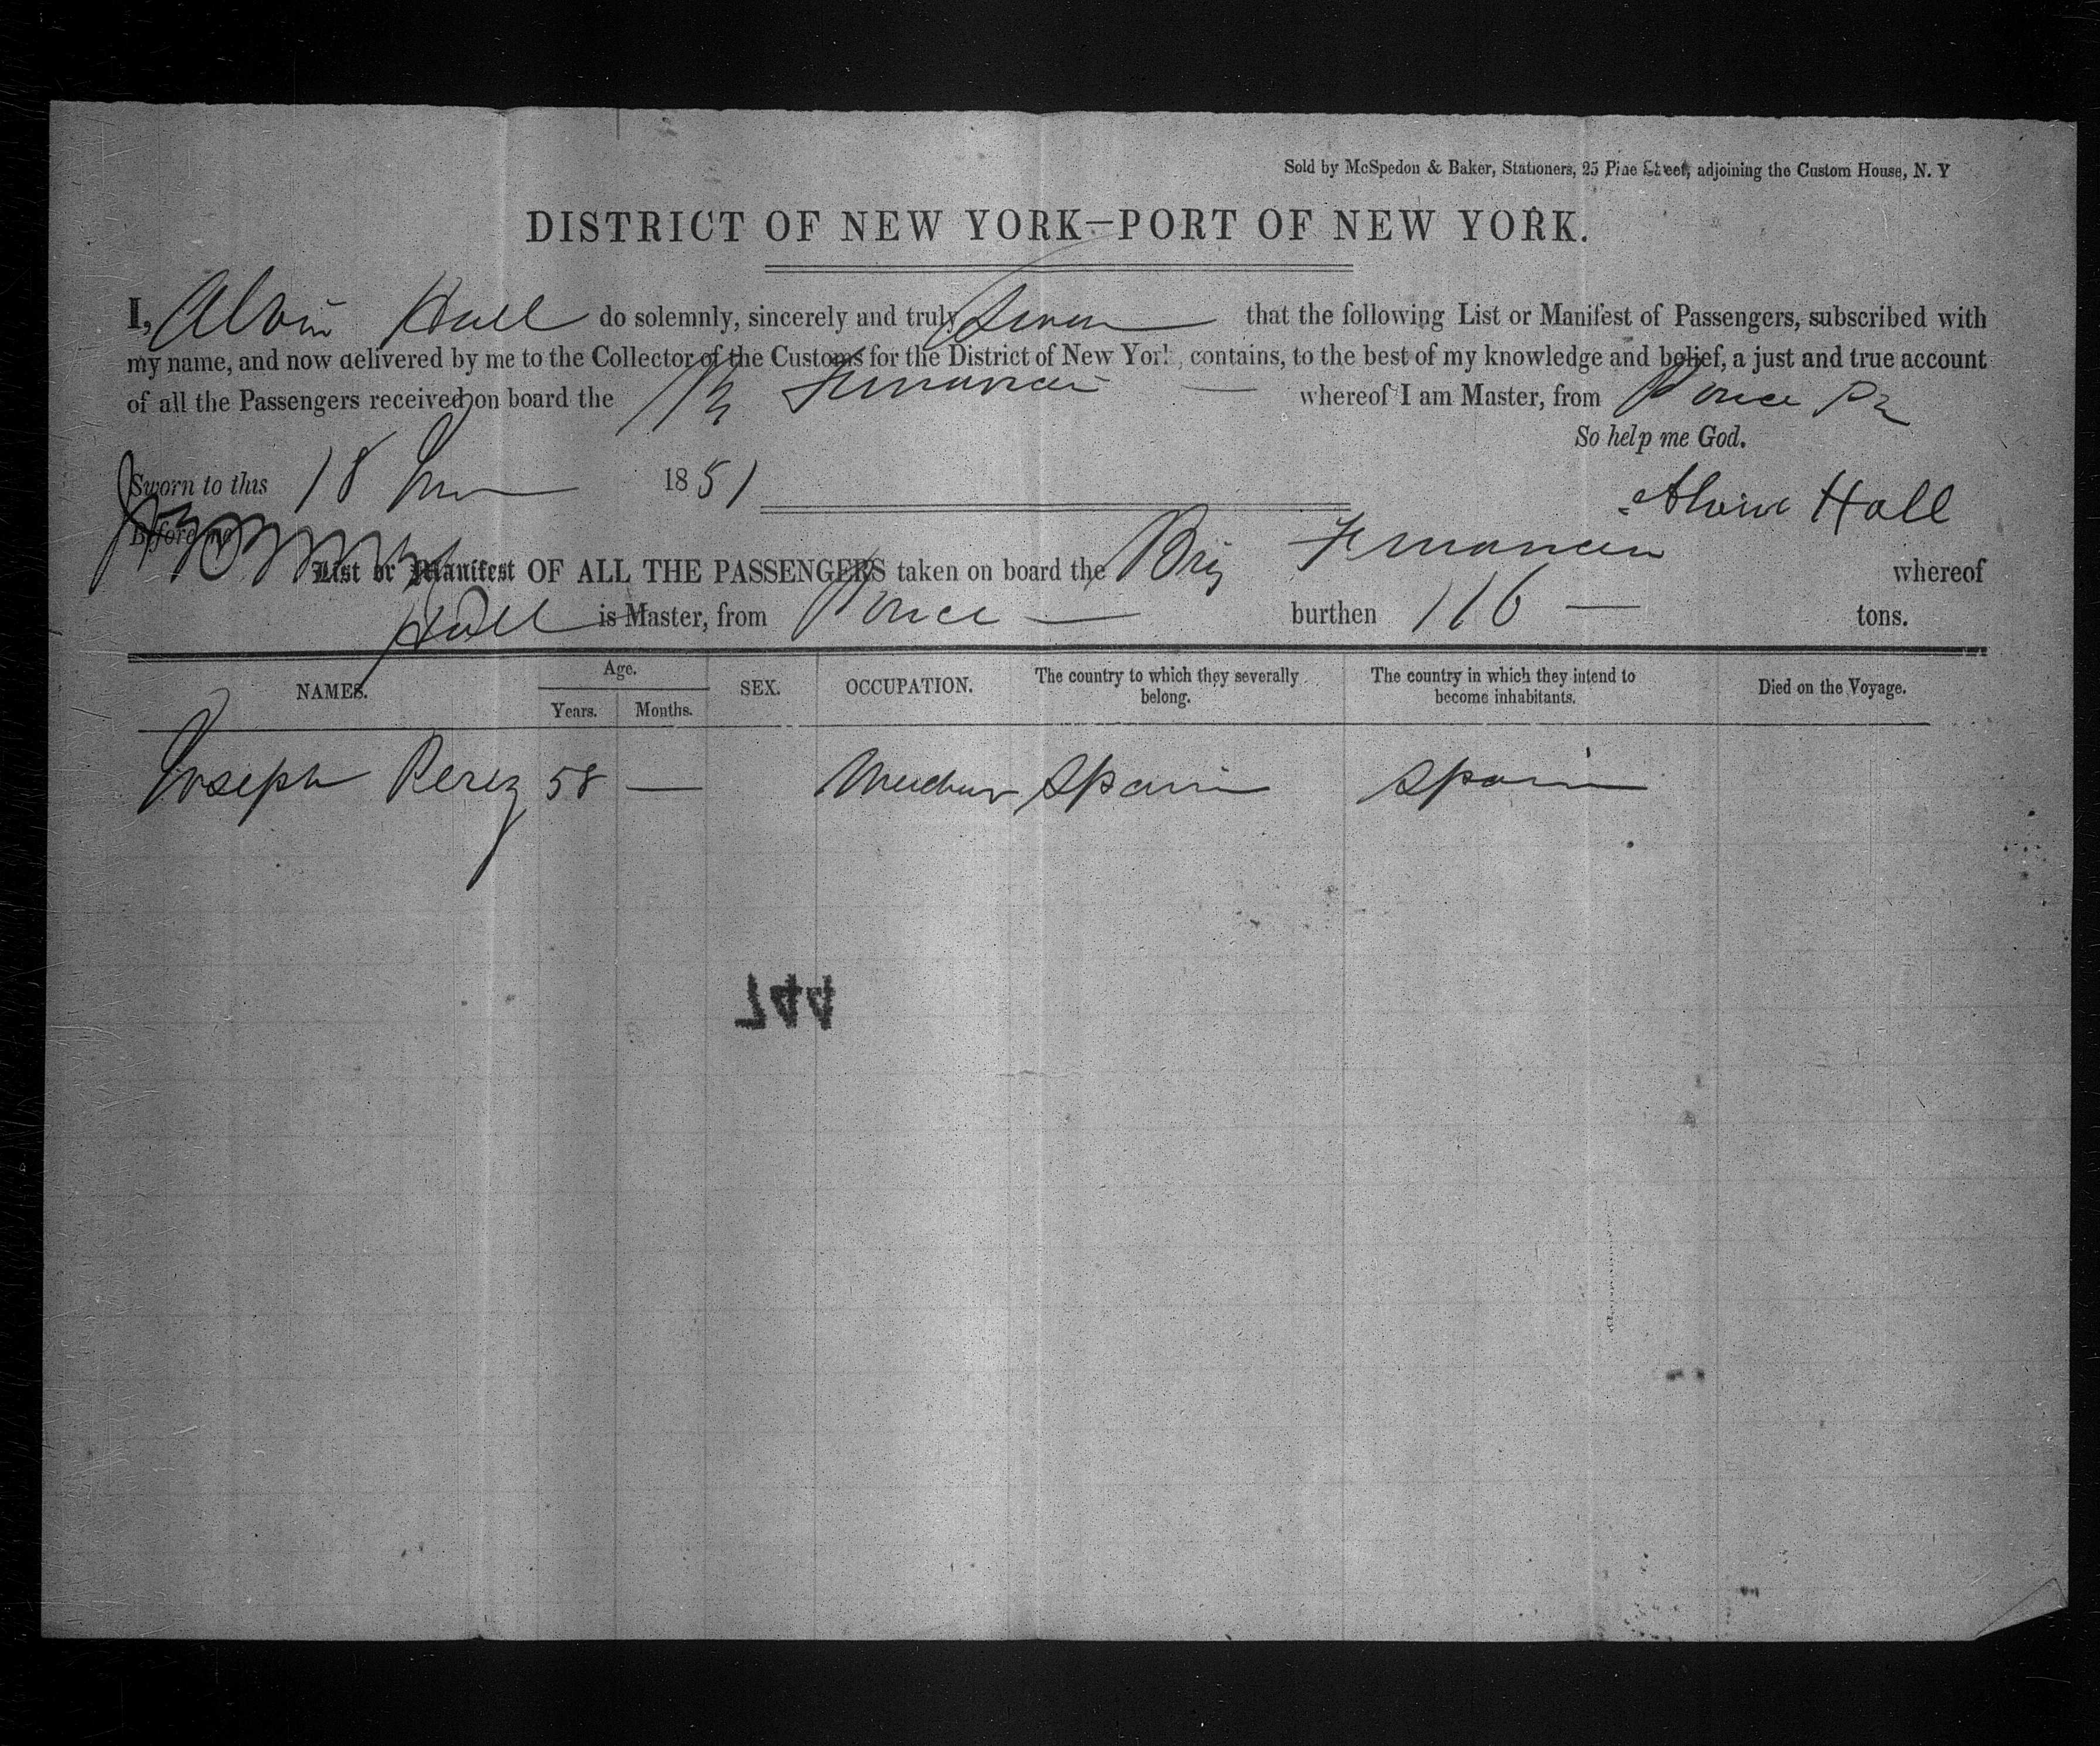 Sold by McSpedon & Baker, Stationers, 25 Pine Street, adjoining the Custom House, N. Y
DISTRICT OF NEW YORK—PORT OF NEW YORK.
I, Alvin Hall do solemnly, sincerely and truly swear that the following List or Manifest of Passengers, subscribed with
my name, and now delivered by me to the Collector of the Customs for the District of New York, contains, to the best of my knowledge and belief, a just and true account
of all the Passengers received on board the whereof I am Master, from Ponce PR
So help me God.
Sworn to this 18 1851
Alvin Hall
Before me
List or Manifest OF ALL THE PASSENGERS taken on board the Brig whereof
Hall is Master, from Ponce — burthen 116 — tons.
NAMES. Age. Years. Months. SEX. OCCUPATION. The country to which they severally belong. The country in which they intend to become inhabitants. Died on the Voyage.
Joseph Perez 58 — Spain Spain
744